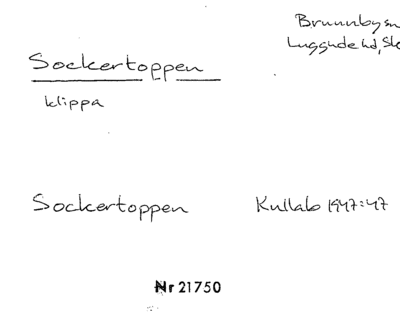 Brunnby sn
Luggude hd, Sk
Sockertoppen
klippa
Sockertoppen Kullabo 1947:47
Nr 21750